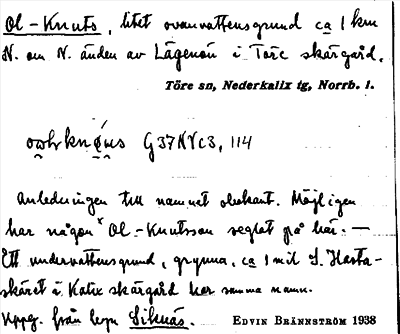 Ol-Knuts, litet ovanvattensgrund ca 1 km
N. om N. änden av Lägenön i Töre skärgård.
Töre sn, Nederkalix tg, Norrb. l.
G37NVc3, 114
Anledningen till namnet obekant. Möjligen
har någon Ol.-Knutsson seglat på här. —
Ett undervattensgrund, grynna, ca 1 mil S. Hasta-
skäret i Kalix skärgård har samma namn.
Uppg. från byn Siknäs. EDVIN BRÄNNSTRÖM 1938